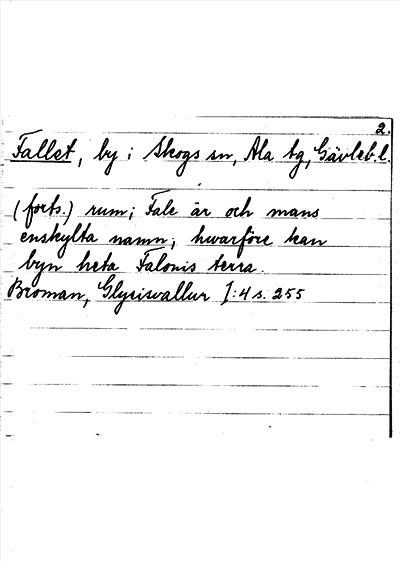 2.
Fallet, by i Skogs sn, Ala tg, Gävleb. l.
(forts.) rum; Fale är och mans
enskylta namn, hwarföre kan
byn heta Falonis terra.
Broman, Glysisvallur I:4 s. 255